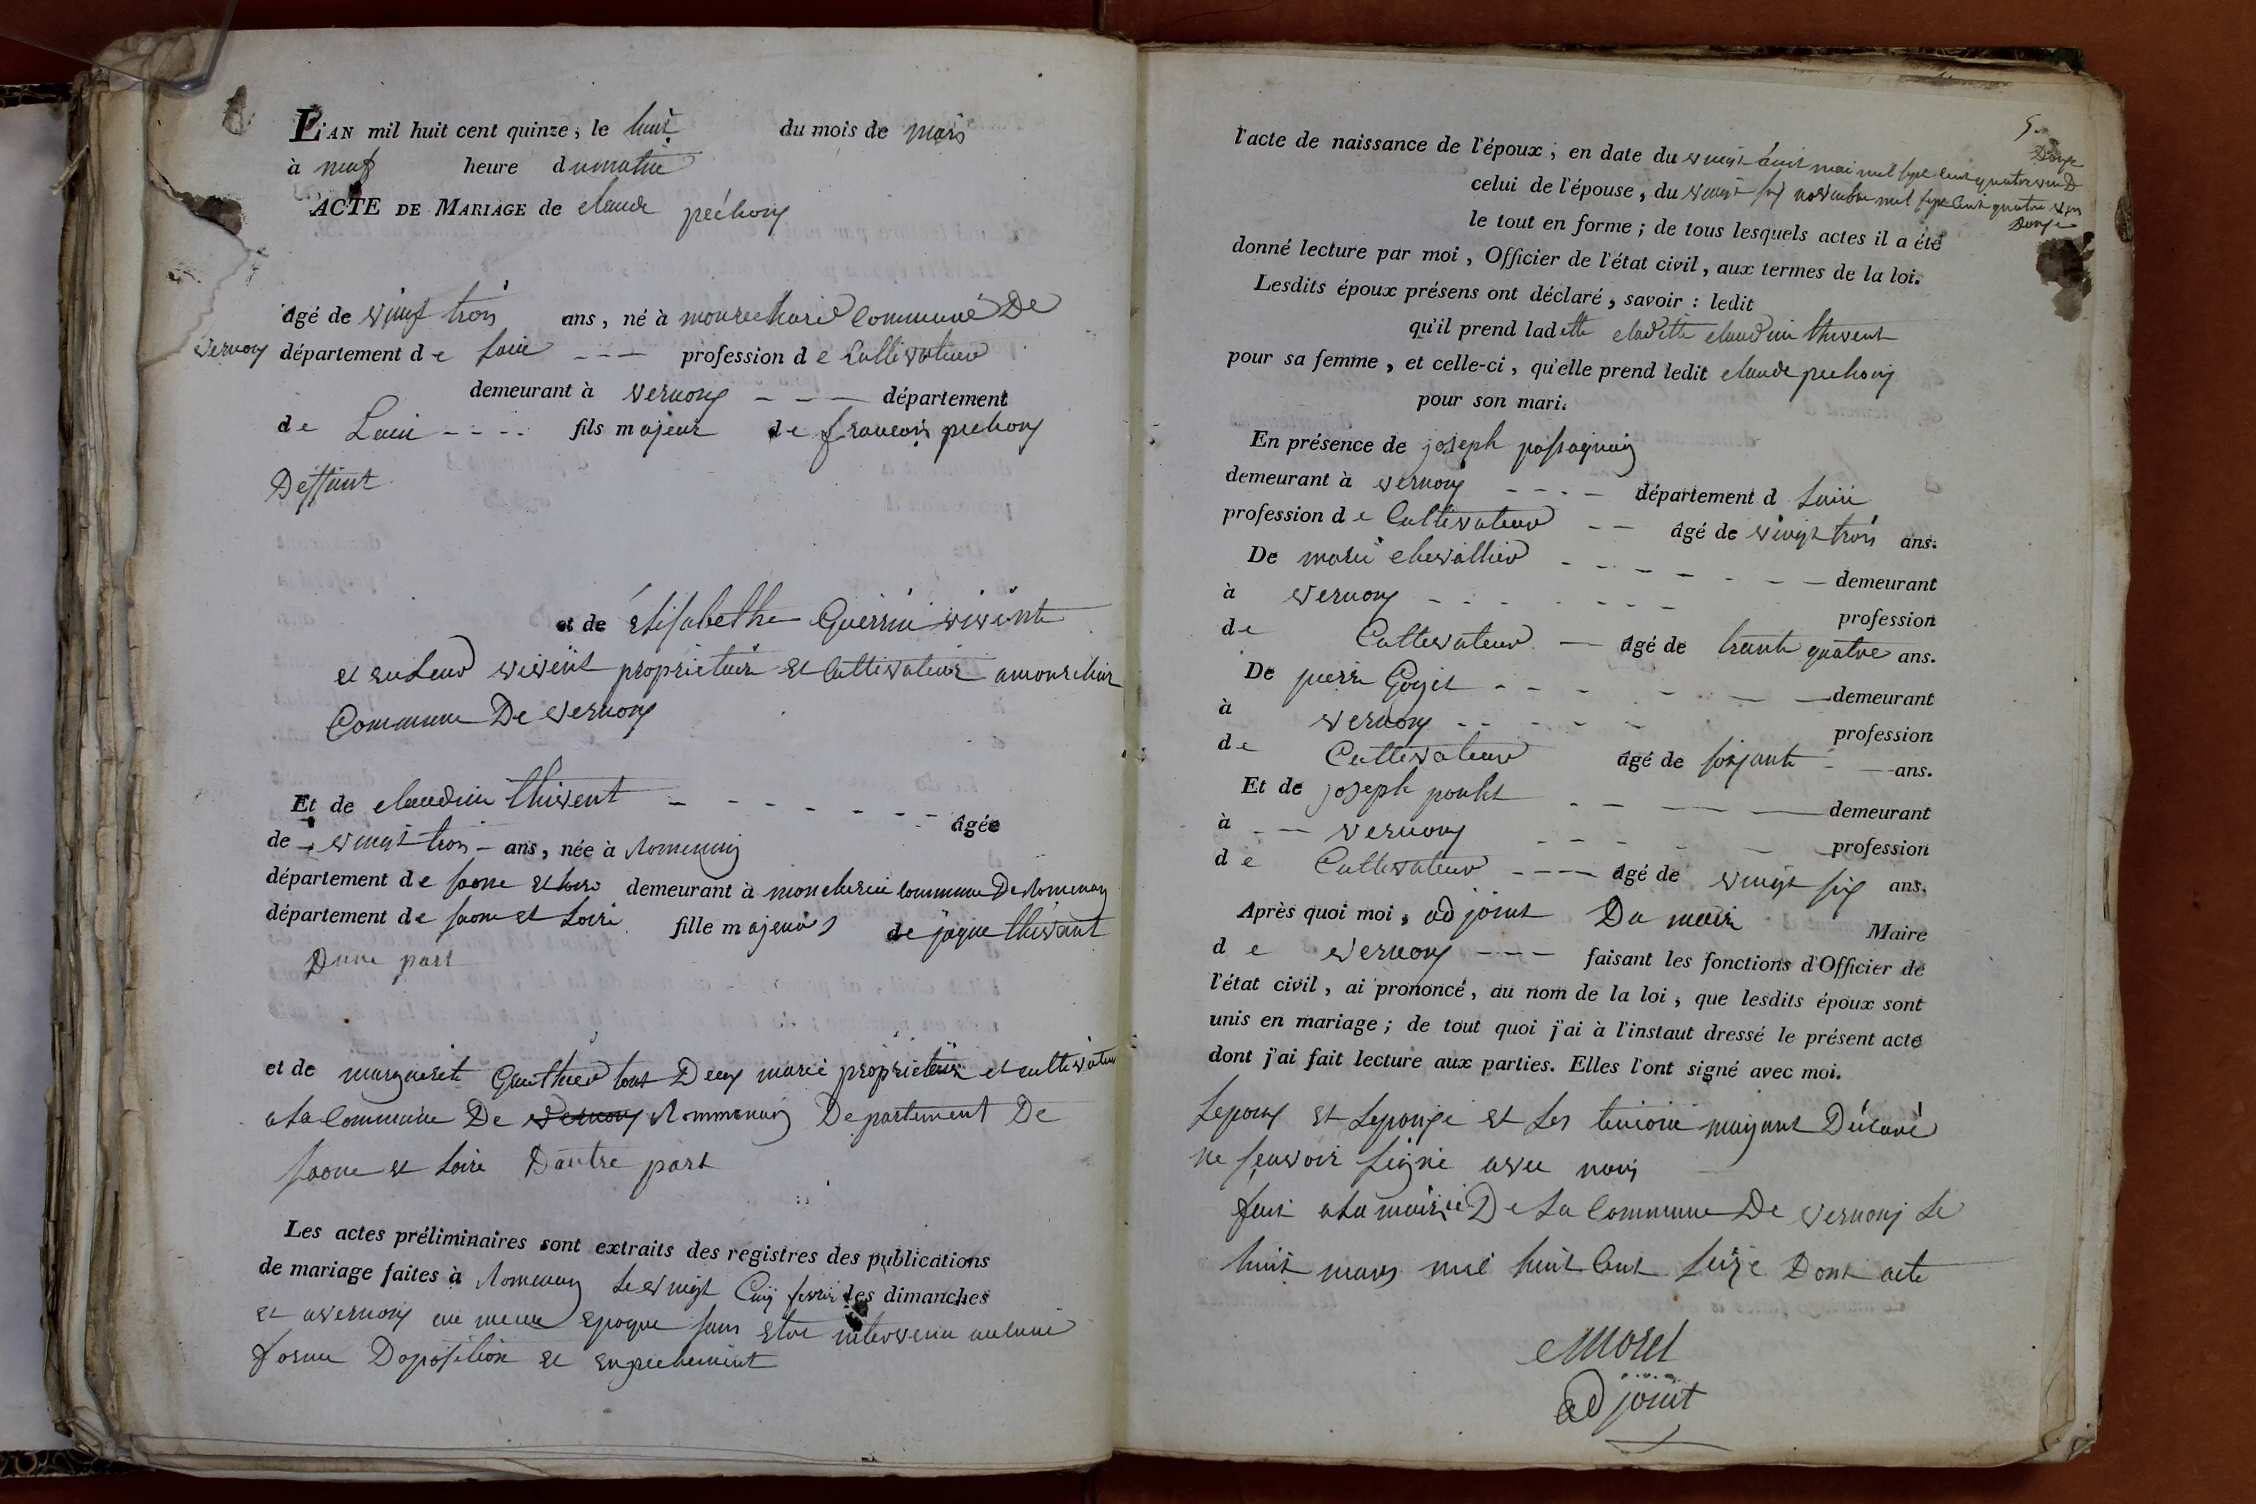 L'AN mil huit cent quinze, le huit du mois de mars
à neuf heure du matin
ACTE DE MARIAGE de claude pechoux
âgé de vingt trois ans, né à commune De
vernoux département de Lain --- profession de Cultivateur
demeurant à vernoux --- département
de Lain ---- fils majeur de francois pechoux
Deffunt
et de Elisabethe Guerrin vivinte
et vivent proprietaire et Cultivateur
Commune De vernoux
Et de claudine thivent - - - - - - - âgée
de - vingt trois - ans, née à Romenay
département de saone et Loire demeurant à commune De Romenay
département de saone et Loire fille majeure de jaque thivant
Dune part
et de marguerite Gauthier tout Deux marié proprietaire et cultivateur
a La Commune De vernoux Rommenay Departement De
saone et Loire Dautre part
Les actes préliminaires sont extraits des régistres des publications
de mariage faites à Romenay Le vingt Cinq fevrier les dimanches
et a vernoux meme epoque sans etre intervenu aucune
forme Doposition et enpechement
5.
l'acte de naissance de l'époux, en date du vingt huit mai mil sept cent quatre vin D
Douze
celui de l'épouse, du vingt six novembre mil sept Cent quatre vin
Douze
le tout en forme; de tous lesquels actes il a été
donné lecture par moi, Officier de l'état civil, aux termes de la loi.
Lesdits époux présens ont déclaré, savoir: ledit
qu'il prend ladette claudine thivent
pour sa femme, et celle-ci, qu'elle prend ledit claude pechoux
pour son mari.
En présence de joseph
demeurant à vernoux ---- département d Lain
profession de Cultivateur -- âgé de vingt trois ans.
De marie chevallier - - - - - - - demeurant
à vernoux - - - - - - - profession
de Cultivateur - âgé de trente quatre ans.
De pierre Goyet - - - - - - demeurant
à vernoux - - - - - profession
de Cultivateur âgé de soixante - - ans.
Et de joseph poulet - - - - demeurant
à -- vernoux - - - - - profession
de Cultivateur ---- âgé de vingt six ans.
Après quoi moi, adjoint Du maire Maire
de vernoux --- faisant les fonctions d'Officier de
l'état civil, ai prononcé, au nom de la loi, que lesdits époux sont
unis en mariage; de tout quoi j'ai à l'instaut dressé le présent acte
dont j'ai fait lecture aux parties. Elles l'ont signé avec moi.
Lepoux et Lepouze et Les temoin mayant Déclaré
ne seavoir signé avec nous
fait a La mairie De La Commune De vernoux Le
huit mars mil huit Cent seize Dont acte
Morel
adjoint